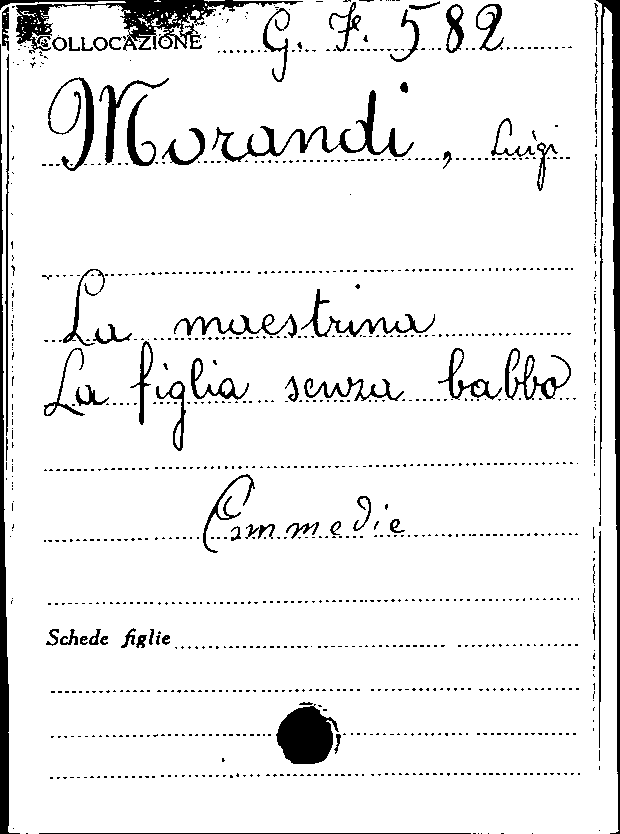 COLLOCAZIONE G. F. 582
Morandi, Luigi
La maestrina
La figlia senza babbo
Commedie
Schede figlie